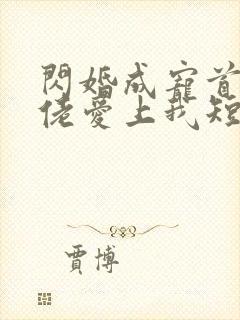 閃婚成寵首
佬愛上我短
賈博